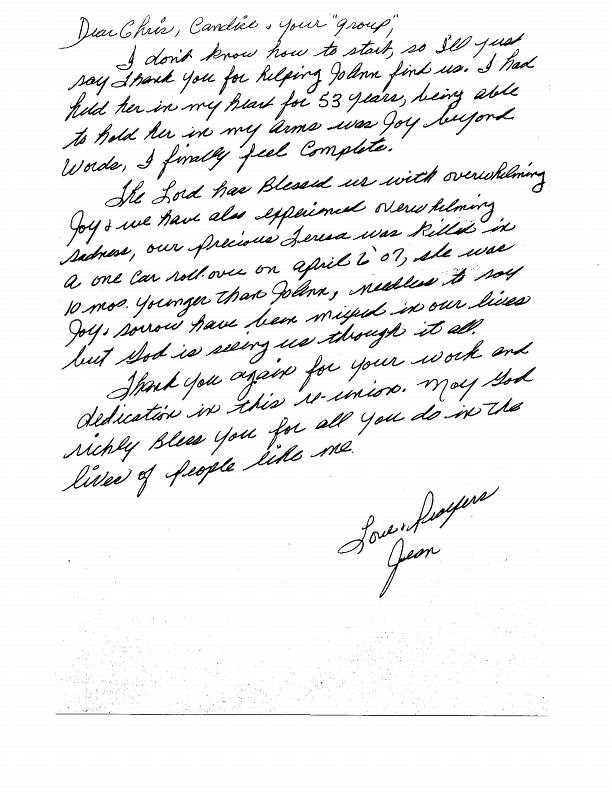 Dear Chris, Candice & your "group",
I don't know how to start, so I'll just
say Thank you for helping JoAnn find us. I had
held her in my heart for 53 years, being able
to hold her in my arms was Joy beyond
Words, I finally feel Complete.
The Lord has Blessed us with overwhelming
Joy & we have also experienced overwhelming
sadness, our precious Teresa was killed in
a one car roll-over on april 2 07, she was
10 mos. younger than JoAnn, needless to say
Joy & sorrow have been mixed in our lives
but God is seeing us though it all.
Thank you again for your work and
dedication in this re-union. May God
richly Bless you for all you do in the
lives of people like me.
Love & Prayers
Jean